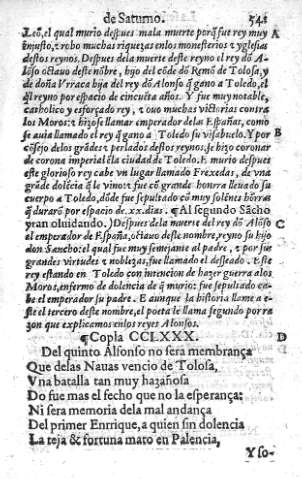 de Saturno. 541
Leõ, el qual murio despues mala muerte porq̃ fue rey muy A
injusto, z robo muchas riquezas en los monesterios z yglesias
destos reynos. Despues dela muerte deste reyno el rey dõ A-
lõso octauo deste nõbre, hijo del cõde dõ Remõ de Tolosa, y
de doña Vrraca hija del rey dõ Alonso q̃ gano a Toledo, el
q̃l reyno por espacio de cincuẽta años. Y fue muy notable,
catholico y esforçado rey, z ouo muchas victorias contra
los Moros: z hizose llamar emperador delas Españas, como
se auia llamado el rey q̃ gano a Toledo su visabuelo. Y por B
cõsejo delos grãdes z perlados destos reynos, se hizo coronar
de corona imperial ẽla ciudad de Toledo. E murio despues
este glorioso rey cabe vn lugar llamado Frexedas, de vna
grãde dolẽcia q̃ le vino: z fue cõ grande honrra lleuado su
cuerpo a Toledo, dõde fue sepultado cõ muy solẽnes hõrras
q̃ durarõ por espacio de .xx. dias. ¶ Al segundo Sãcho
yran oluidando.) Despues dela muerte del rey dõ Alõso C
el emperador de España, octauo deste nombre, reyno su hijo
don Sancho: el qual fue muy semejante al padre, z por sus
grandes virtudes z noblezas, fue llamado el desseado. E este
rey estando en Toledo con intencion de hazer guerra alos
Moros, enfermo de dolencia de q̃ murio: fue sepultado ca-
be el emperador su padre. E aunque la historia llame a e-
ste el tercero deste nombre, el poeta le llama segundo por ra
zon que explicamos en los reyes Alonsos.
¶ Copla CCLXXX. D
Del quinto Alfonso no sera membrança
Que delas Nauas vencio de Tolosa,
Vna batalla tan muy hazañosa
Do fue mas el fecho que no la esperança:
Ni sera memoria dela mal andança
Del primer Enrrique, a quien sin dolencia
La teja & fortuna mato en Palencia,
Y so-